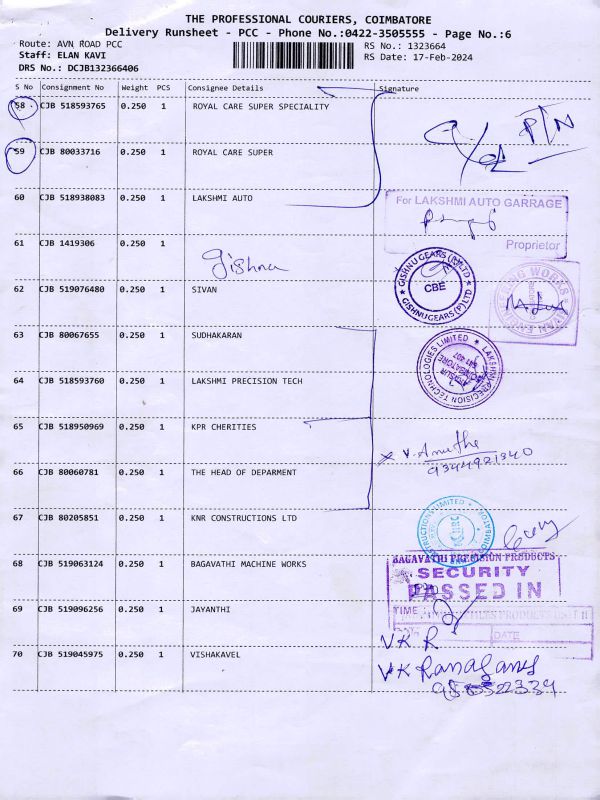 THE PROFESSIONAL COURIERS, COIMBATORE
Delivery Runsheet - PCC - Phone No.:0422-3505555 - Page No.:6
Route: AVN ROAD PCC
RS No.: 1323664
Staff: ELAN KAVI
RS Date: 17-Feb-2024
DRS No.: DCJB132366406
S No Consignment No Weight PCS Consignee Details Signature
58 CJB 518593765 0.250 1 ROYAL CARE SUPER SPECIALITY
P/N
59 CJB 80033716 0.250 1 ROYAL CARE SUPER
60 CJB 518938083 0.250 1 LAKSHMI AUTO
For LAKSHMI AUTO GARRAGE
Proprietor
61 CJB 1419306 0.250 1
Gishnu
GISHNU GEARS (P) LTD
CBE
GISHNU GEARS (P) LTD
62 CJB 519076480 0.250 1 SIVAN
63 CJB 80067655 0.250 1 SUDHAKARAN
LAKSHMI PRECISION TECHNOLOGIES LIMITED
64 CJB 518593760 0.250 1 LAKSHMI PRECISION TECH
65 CJB 518950969 0.250 1 KPR CHERITIES
x V. Anutha
9344921340
66 CJB 80060781 0.250 1 THE HEAD OF DEPARMENT
67 CJB 80205851 0.250 1 KNR CONSTRUCTIONS LTD
68 CJB 519063124 0.250 1 BAGAVATHI MACHINE WORKS
BAGAVATHI PRECISION PRODUCTS
SECURITY
PASSED IN
TIME
DATE
69 CJB 519096256 0.250 1 JAYANTHI
VKR
70 CJB 519045975 0.250 1 VISHAKAVEL
VK